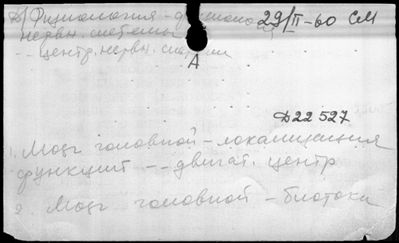 Физиология - 29/II-60 СМ
нервн. системы
-- центр. нервн. системы
А
Д22527
1. Мозг головной - локализация
функций -- двигат. центр
2 Мозг головной - биотоки